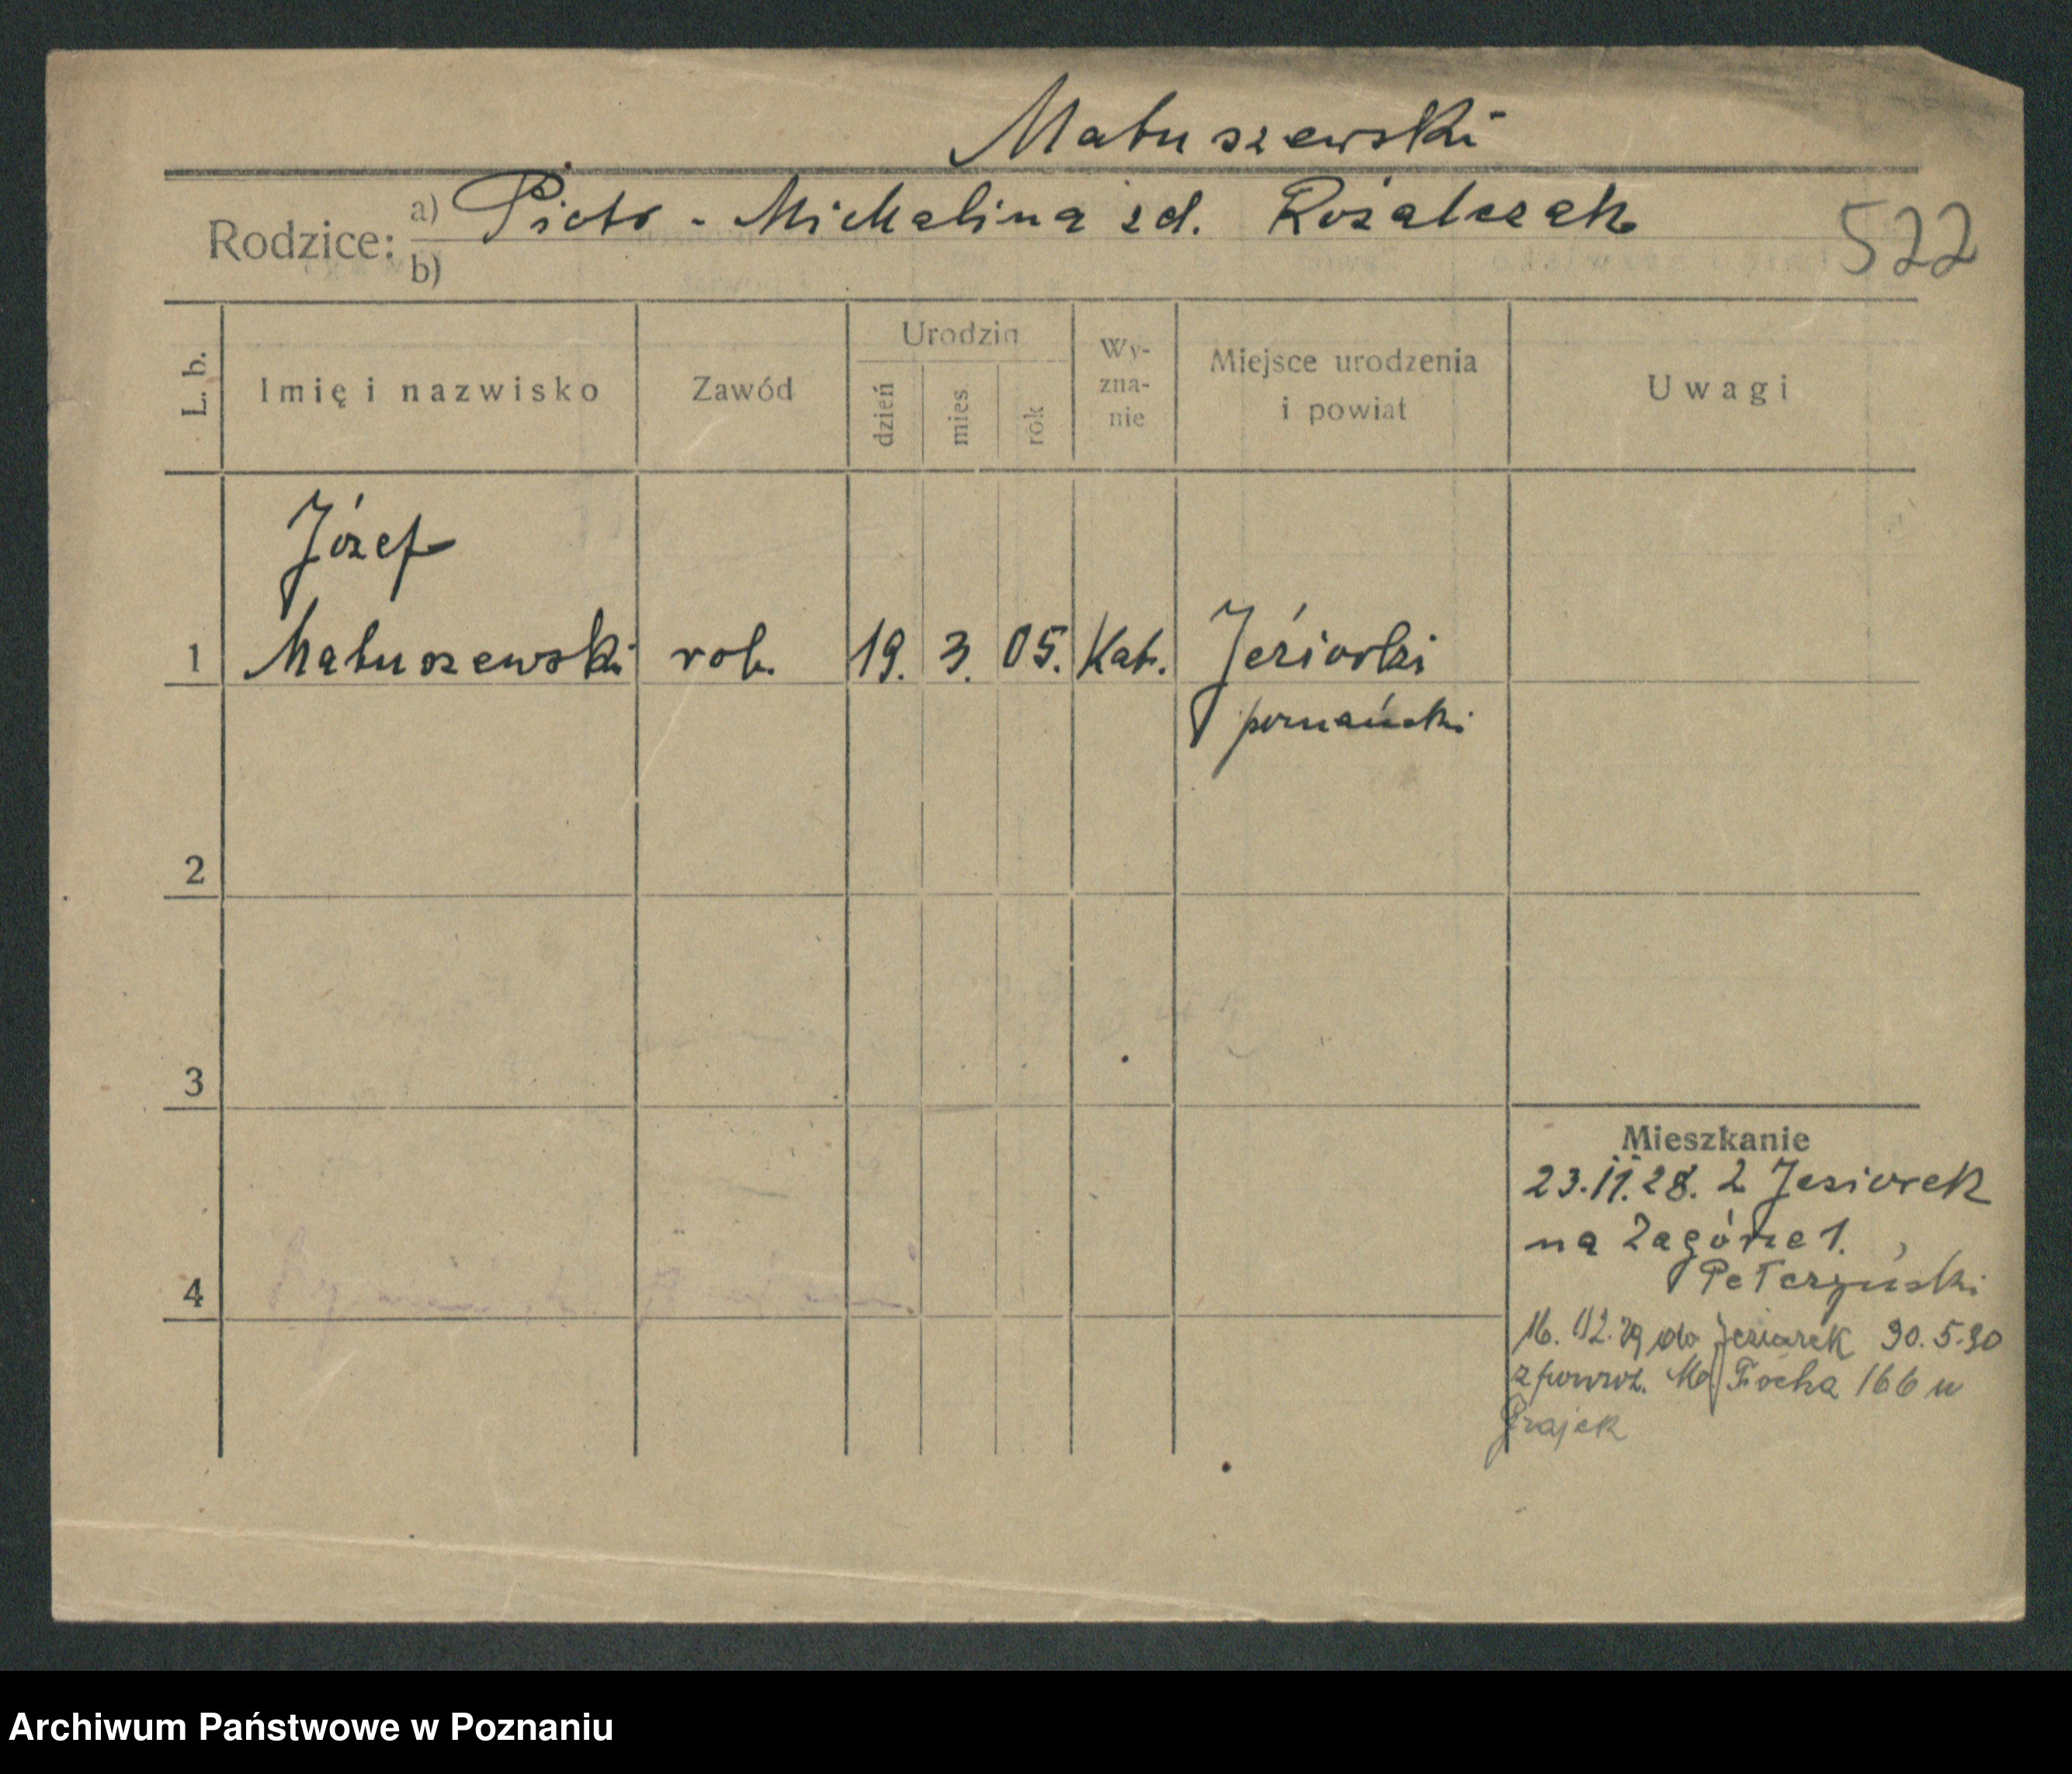 Matuszewski
Rodzice: a) Piotr - Michalina zd. Rożalczak
b)
522
L. b.
Imię i nazwisko
Zawód
Urodzin
dzień
mies.
rok
Wy-
zna-
nie
Miejsce urodzenia
i powiat
Uwagi
Józef
1 Matuszewski rob. 19. 3. 05. Kat. Jeziorki
poznański
2
3
4
Mieszkanie
23.11.28. z Jeziorek
na Zagórze 1.
16. 02.29 do Jeziorek 30.5.30
z powrot. M. Focha 166 u
Grajek
Archiwum Państwowe w Poznaniu